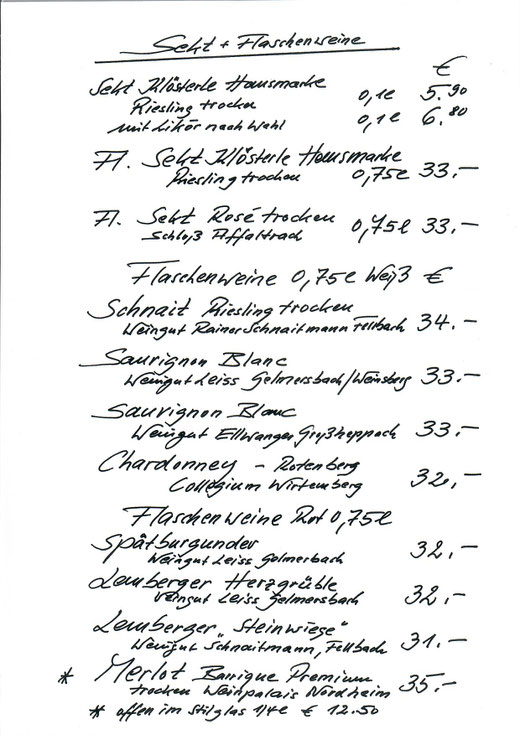 Sekt + Flaschenweine
€
Sekt Klösterle Hausmarke
Riesling trocken 0,1l 5.90
mit Likör nach Wahl 0,1l 6.80
Fl. Sekt Klösterle Hausmarke
Riesling trocken 0,75l 33.-
Fl. Sekt Rosé trocken
Schloß Affaltrach 0,75l 33.-
Flaschenweine 0,75l Weiß €
Schnait Riesling trocken
Weingut Rainer Schnaitmann Fellbach 34.-
Sauvignon Blanc
Weingut Leiss Gelmersbach/Weinsberg 33.-
Sauvignon Blanc
Weingut Ellwanger Großheppach 33.-
Chardonney - Rotenberg
Collegium Wirtemberg 32,-
Flaschenweine Rot 0,75l
Spätburgunder 32,-
Weingut Leiss Gelmerbach
Lemberger Herzgrüble 32,-
Weingut Leiss Gelmersbach
Lemberger „Steinwiege"
Weingut Schnaitmann, Fellbach 31.-
* Merlot Barrique Premium 35.-
trocken Weinpalais Nordheim
* offen im Stilglas 1/4l € 12.50